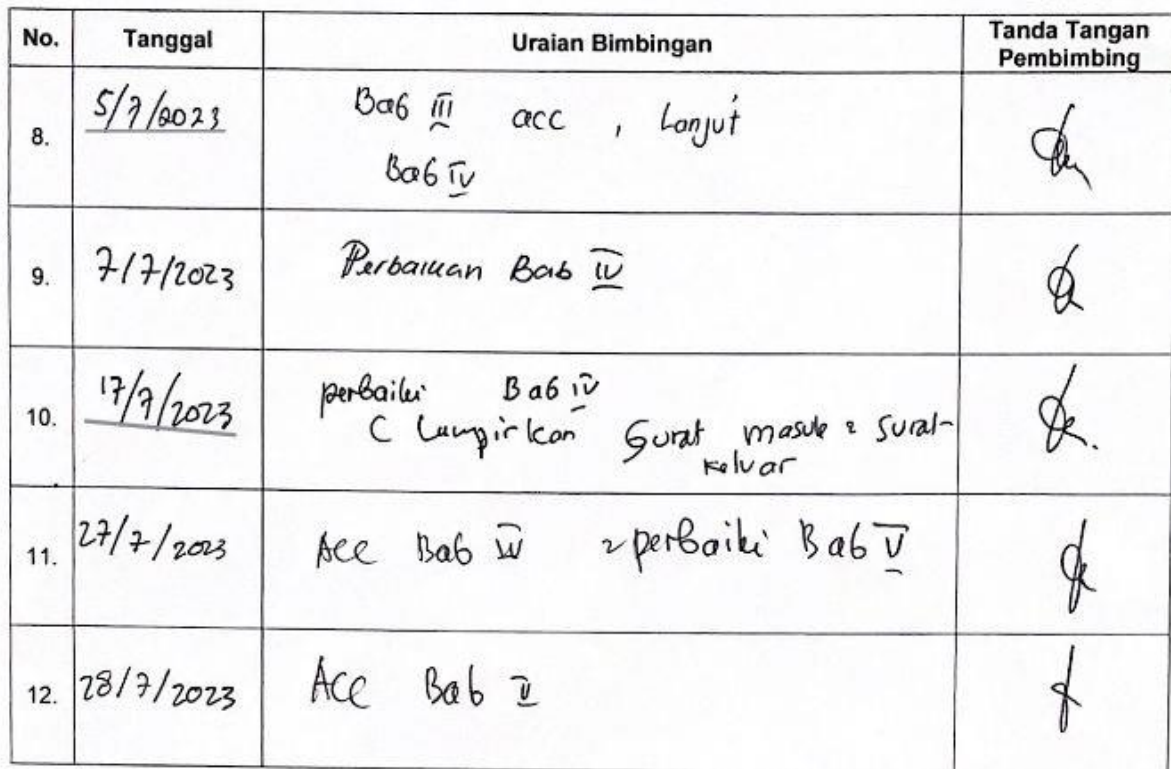 No. Tanggal Uraian Bimbingan Tanda Tangan
Pembimbing
8. 5/7/2023 Bab III acc , Lanjut
Bab IV
9. 7/7/2023 Perbaikan Bab IV
10. 17/7/2023 perbaiki Bab IV
( Lampirkan Surat masuk & Surat
keluar
11. 27/7/2023 Acc Bab IV & perbaiki Bab V
12. 28/7/2023 Acc Bab V